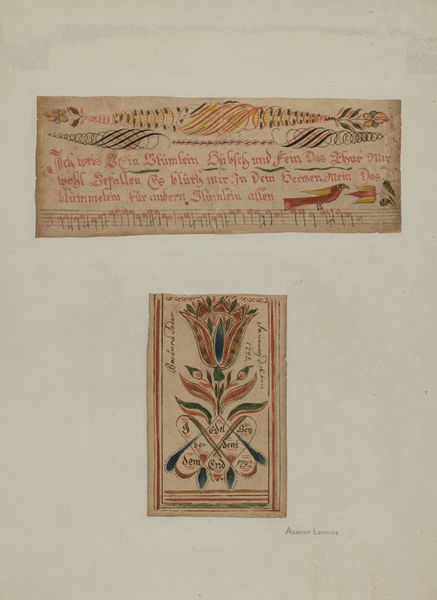 Ich weis Ein Blümlein Hübsch und fein Das Thut Mir
wohl Gefallen Es blüth mir In dem Hertzen Mein Das
blümmelein für andern Blümlein allen
Barbara
January
1792
I Edel Bey
be dent
dem End 1792
Albert Levone